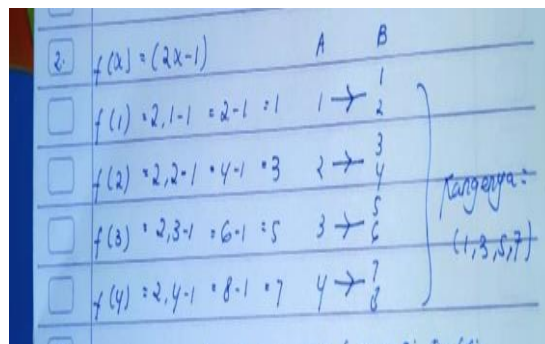 2. f(x) = (2x-1) A B
f(1) = 2.1-1 = 2-1 = 1 1 → 1 2
f(2) = 2.2-1 = 4-1 = 3 2 → 3 4
f(3) = 2.3-1 = 6-1 = 5 3 → 5 6
f(4) = 2.4-1 = 8-1 = 7 4 → 7 8
Rangenya:
(1,3,5,7)